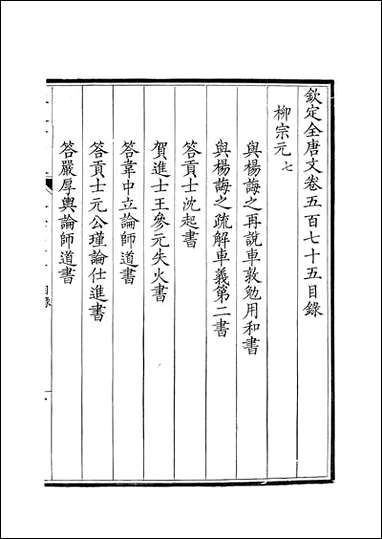 欽定全唐文卷五百七十五目錄
柳宗元 七
與楊誨之再說車敦勉用和書
與楊誨之疏解車義第二書
答貢士沈起書
賀進士王參元失火書
答韋中立論師道書
答貢士元公瑾論仕進書
答嚴厚輿論師道書
目錄